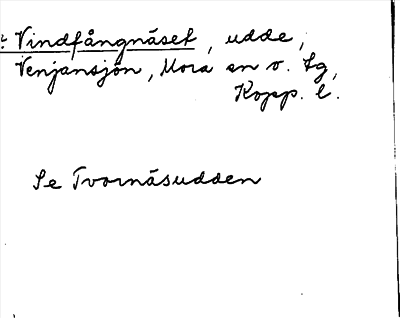 Vindfångnäset, udde,
Venjansjön, Mora sn o. tg,
Kopp. l.
Se Tvornäsudden